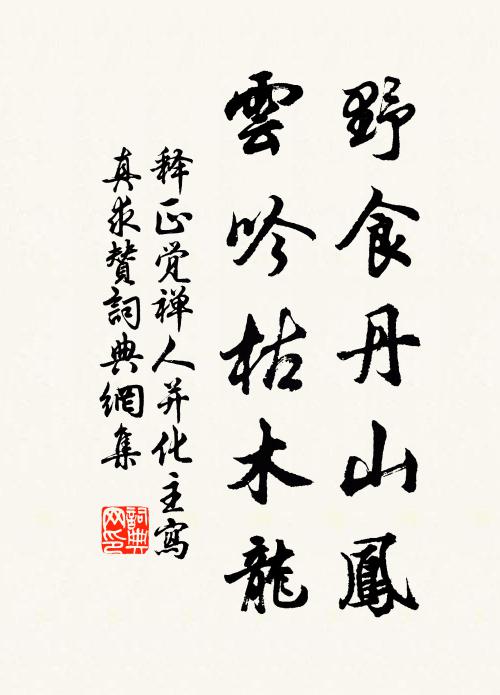 野食丹山鳳
雲吟枯木龍
释正觉禅人并化主寫
真求贊詞典網集
詞典
网印